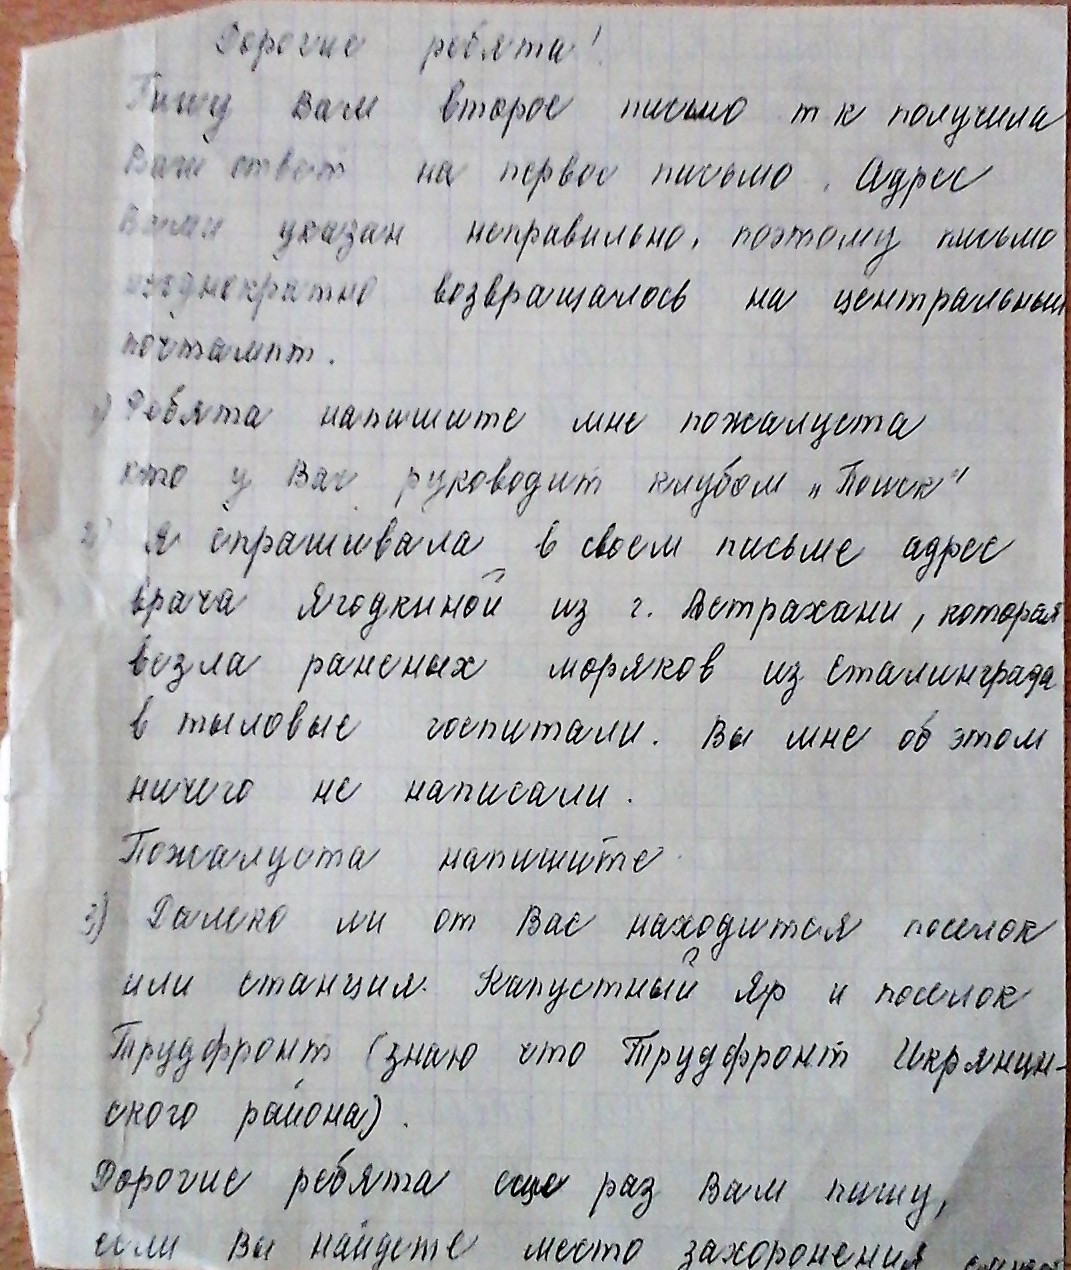 Дорогие ребята!
Пишу Вам второе письмо т к получила
Ваш ответ на первое письмо. Адрес
Вами указан неправильно, поэтому письмо
неоднократно возвращалось на центральный
почтампт.
1) Ребята напишите мне пожалуста
кто у Вас руководит клубом „Поиск"
2) Я спрашивала в своем письме адрес
врача Ягодкиной из г. Астрахани, которая
везла раненых моряков из Сталинграда
в тыловые госпитали. Вы мне об этом
ничего не написали.
Пожалуста напишите
3) Далеко ли от Вас находится поселок
или станция Капустный Яр и поселок
Трудфронт (знаю что Трудфронт Икрянин-
ского района).
Дорогие ребята еще раз Вам пишу,
если Вы найдете место захоронения